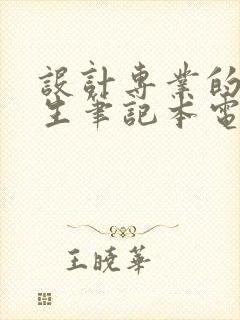 設計専業的
生筆記本電
王曉華